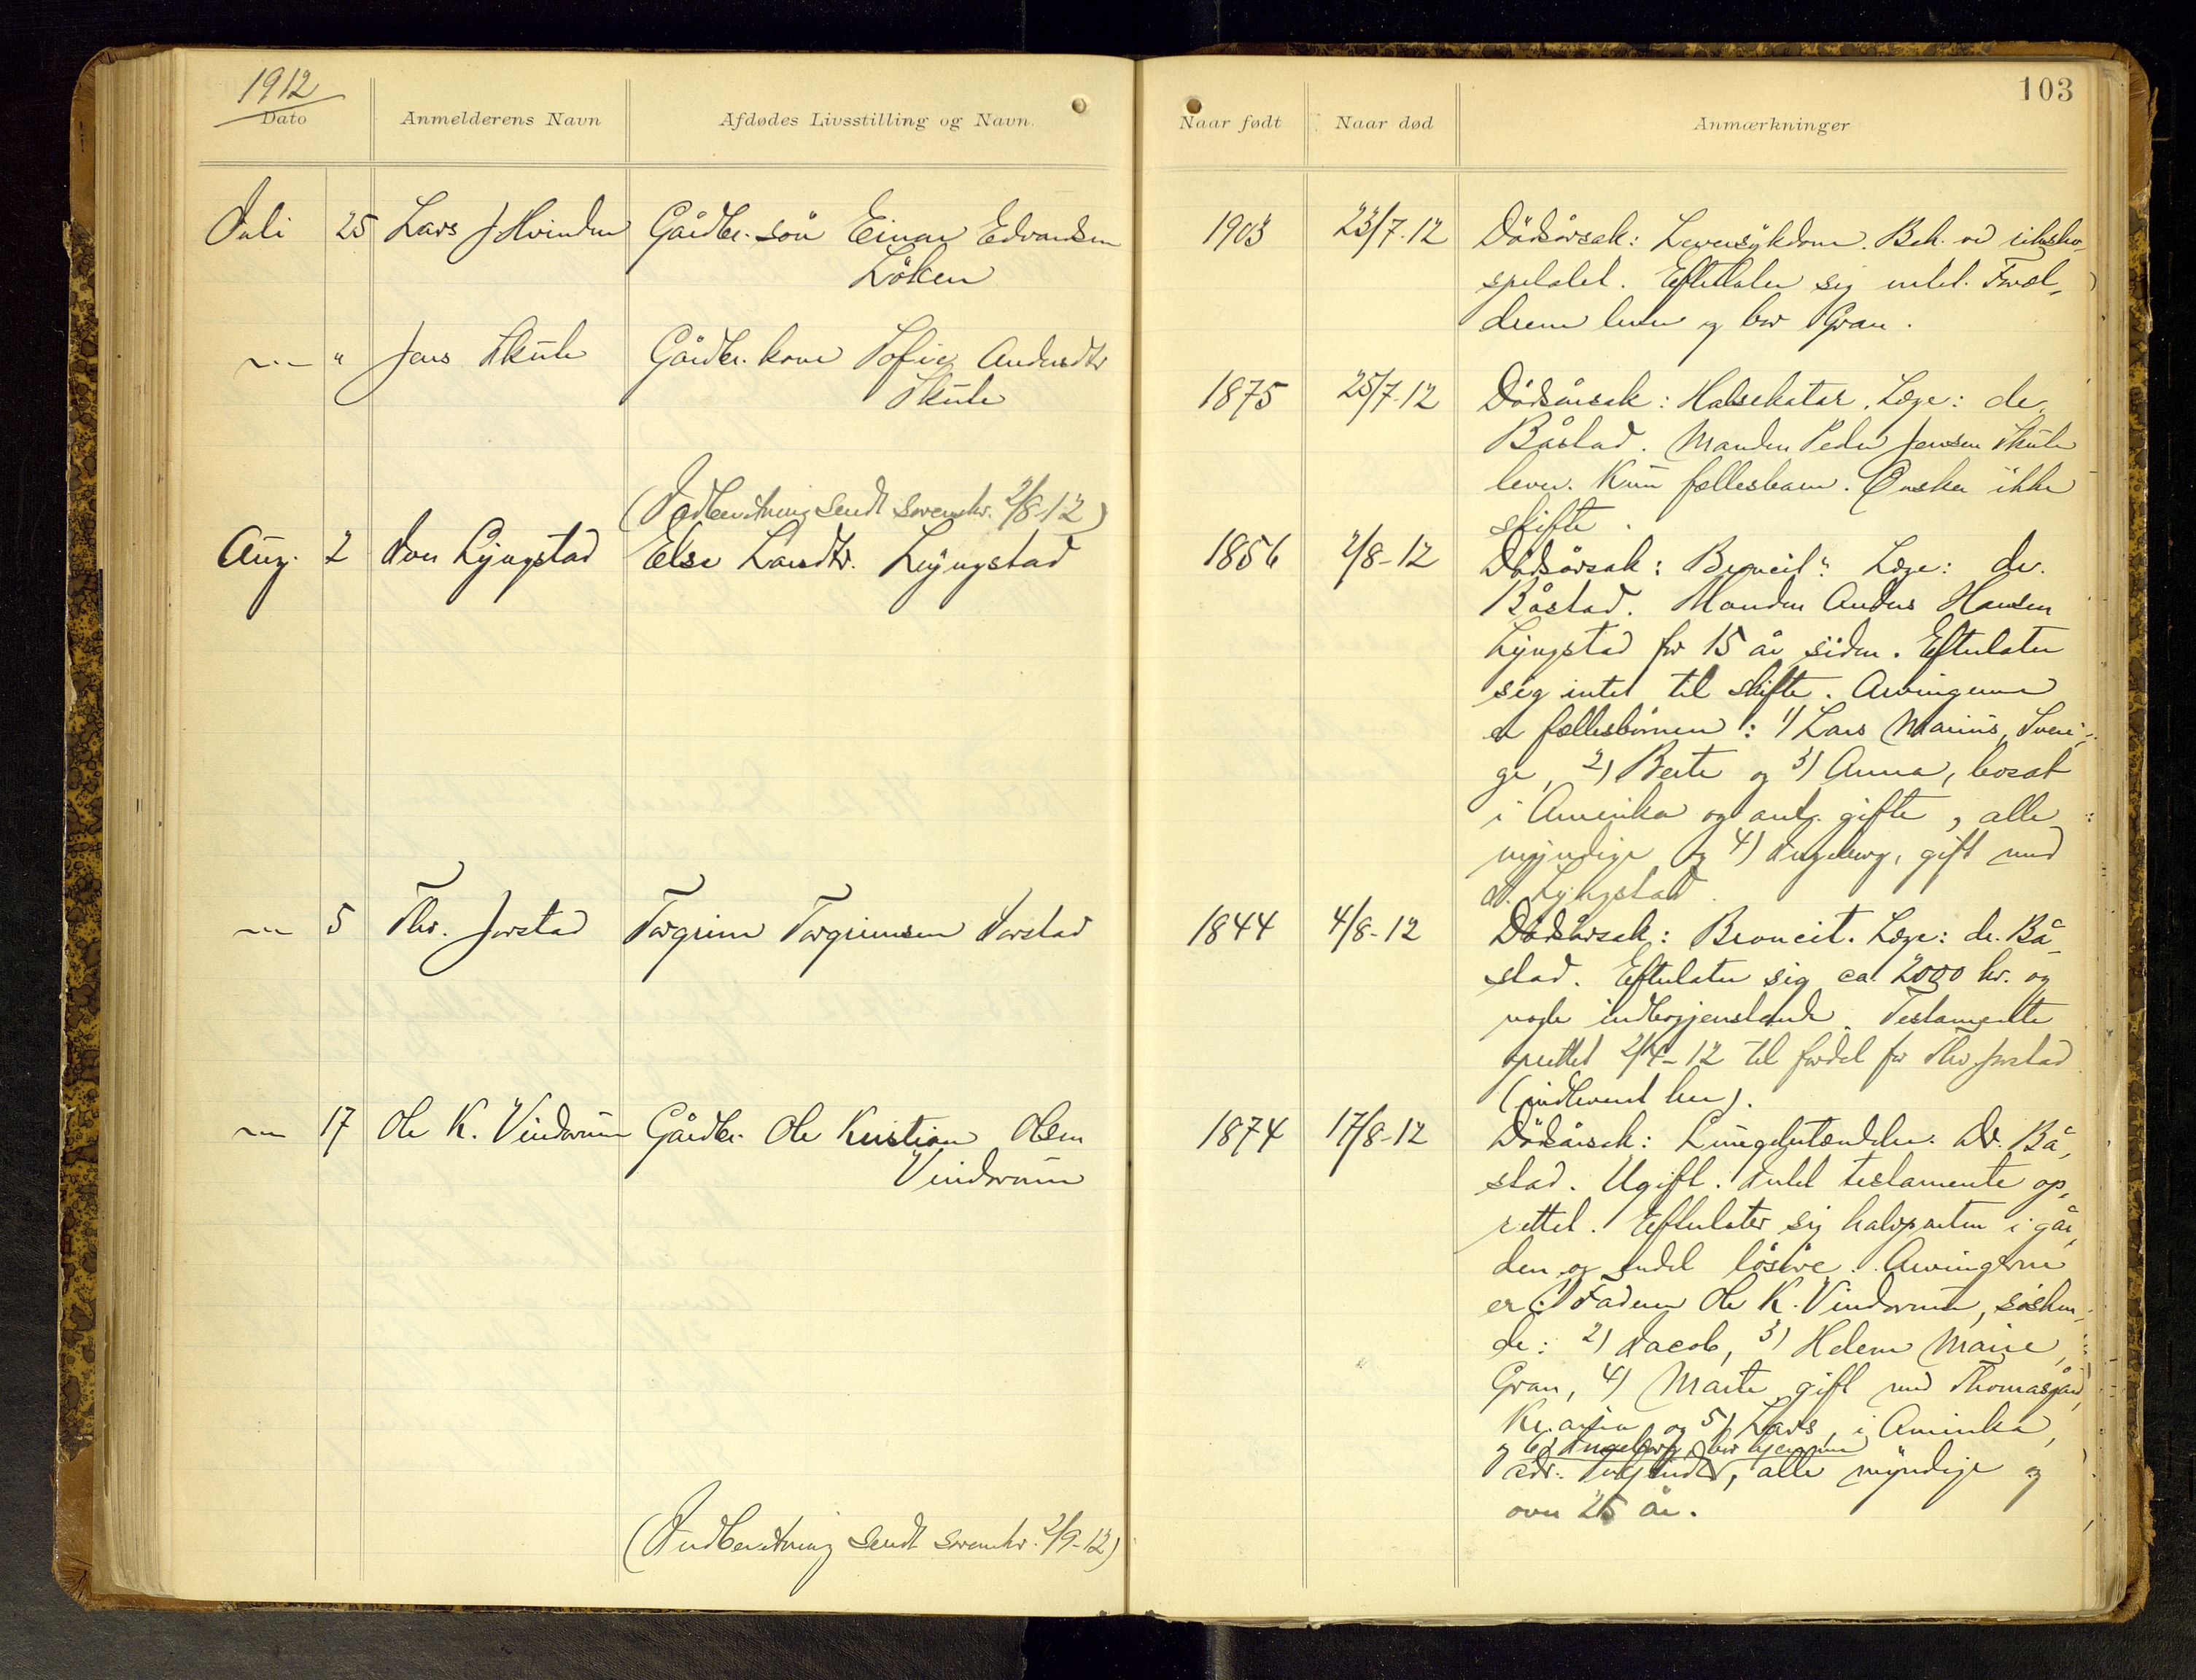 1912
Dato
Anmelderens Navn
Afdødes Livsstilling og Navn.
Naar født
Naar død
Anmærkninger
103
Juli 25 Lars J. Hvinden Gårdbr. søn Einar Edvardsen
Løken
1903 23/7-12 Dødsårsak: Leversykdom. Beh. ved riksho-
spitalet. Efterlater sig intet. Foræl-
drene lever og bor Gran.
" Jens Skute Gårdbr. kone Sofie Andersdtr
Skute
1875 25/7-12 Dødsårsak: Halsekatar. Læge: dr.
Båstad. Manden Peder Jensen Skute
lever. Kun fællesbarn. Ønsker ikke
skifte.
(Indberetning sendt sorenskr. 2/8-12)
Aug. 2 Iver Lyngstad Else Larsdtr. Lyngstad
1856 2/8-12 Dødsårsak: Broncit. Læge: dr.
Båstad. Manden Anders Hansen
Lyngstad for 15 år siden. Efterlater
sig intet til skifte. Arvingerne
er fællesbørnen: 1) Lars Marius, Sveri-
ge, 2) Berte og 3) Anna, bosat
i Amerika og antg. gifte, alle
myndige og 4) Ingeborg, gift med
I. Lyngstad.
5 Thv. Jorstad Torgrim Torgrimsen Jorstad
1844 4/8-12 Dødsårsak: Broncit. Læge: dr. Bå-
stad. Efterlater sig ca. 2000 kr. og
nogle indbogjenstande. Testamente
oprettet 2/4-12 til fordel for Thv. Jorstad
(indleveret her).
17 Ole K. Vindorum Gårdbr. Ole Kristian Olsen
Vindorum
1874 17/8-12 Dødsårsak: Lungebetændelse. Dr. Bå-
stad. Ugift. Intet testamente op-
rettet. Efterlater sig halvparten i går-
den og endel løsøre. Arvingerne
er: 1) Faderen Ole K. Vindorum, søsken-
de: 2) Jacob, 3) Helene Marie,
Gran, 4) Marte gift med Thomasgård,
Kr.ania og 5) Lars, i Amerika,
og 6) Ingeborg, bor hjemme
adr. , alle myndige og
over 25 år.
(Indberetning sendt sorenskr. 2/9-12)